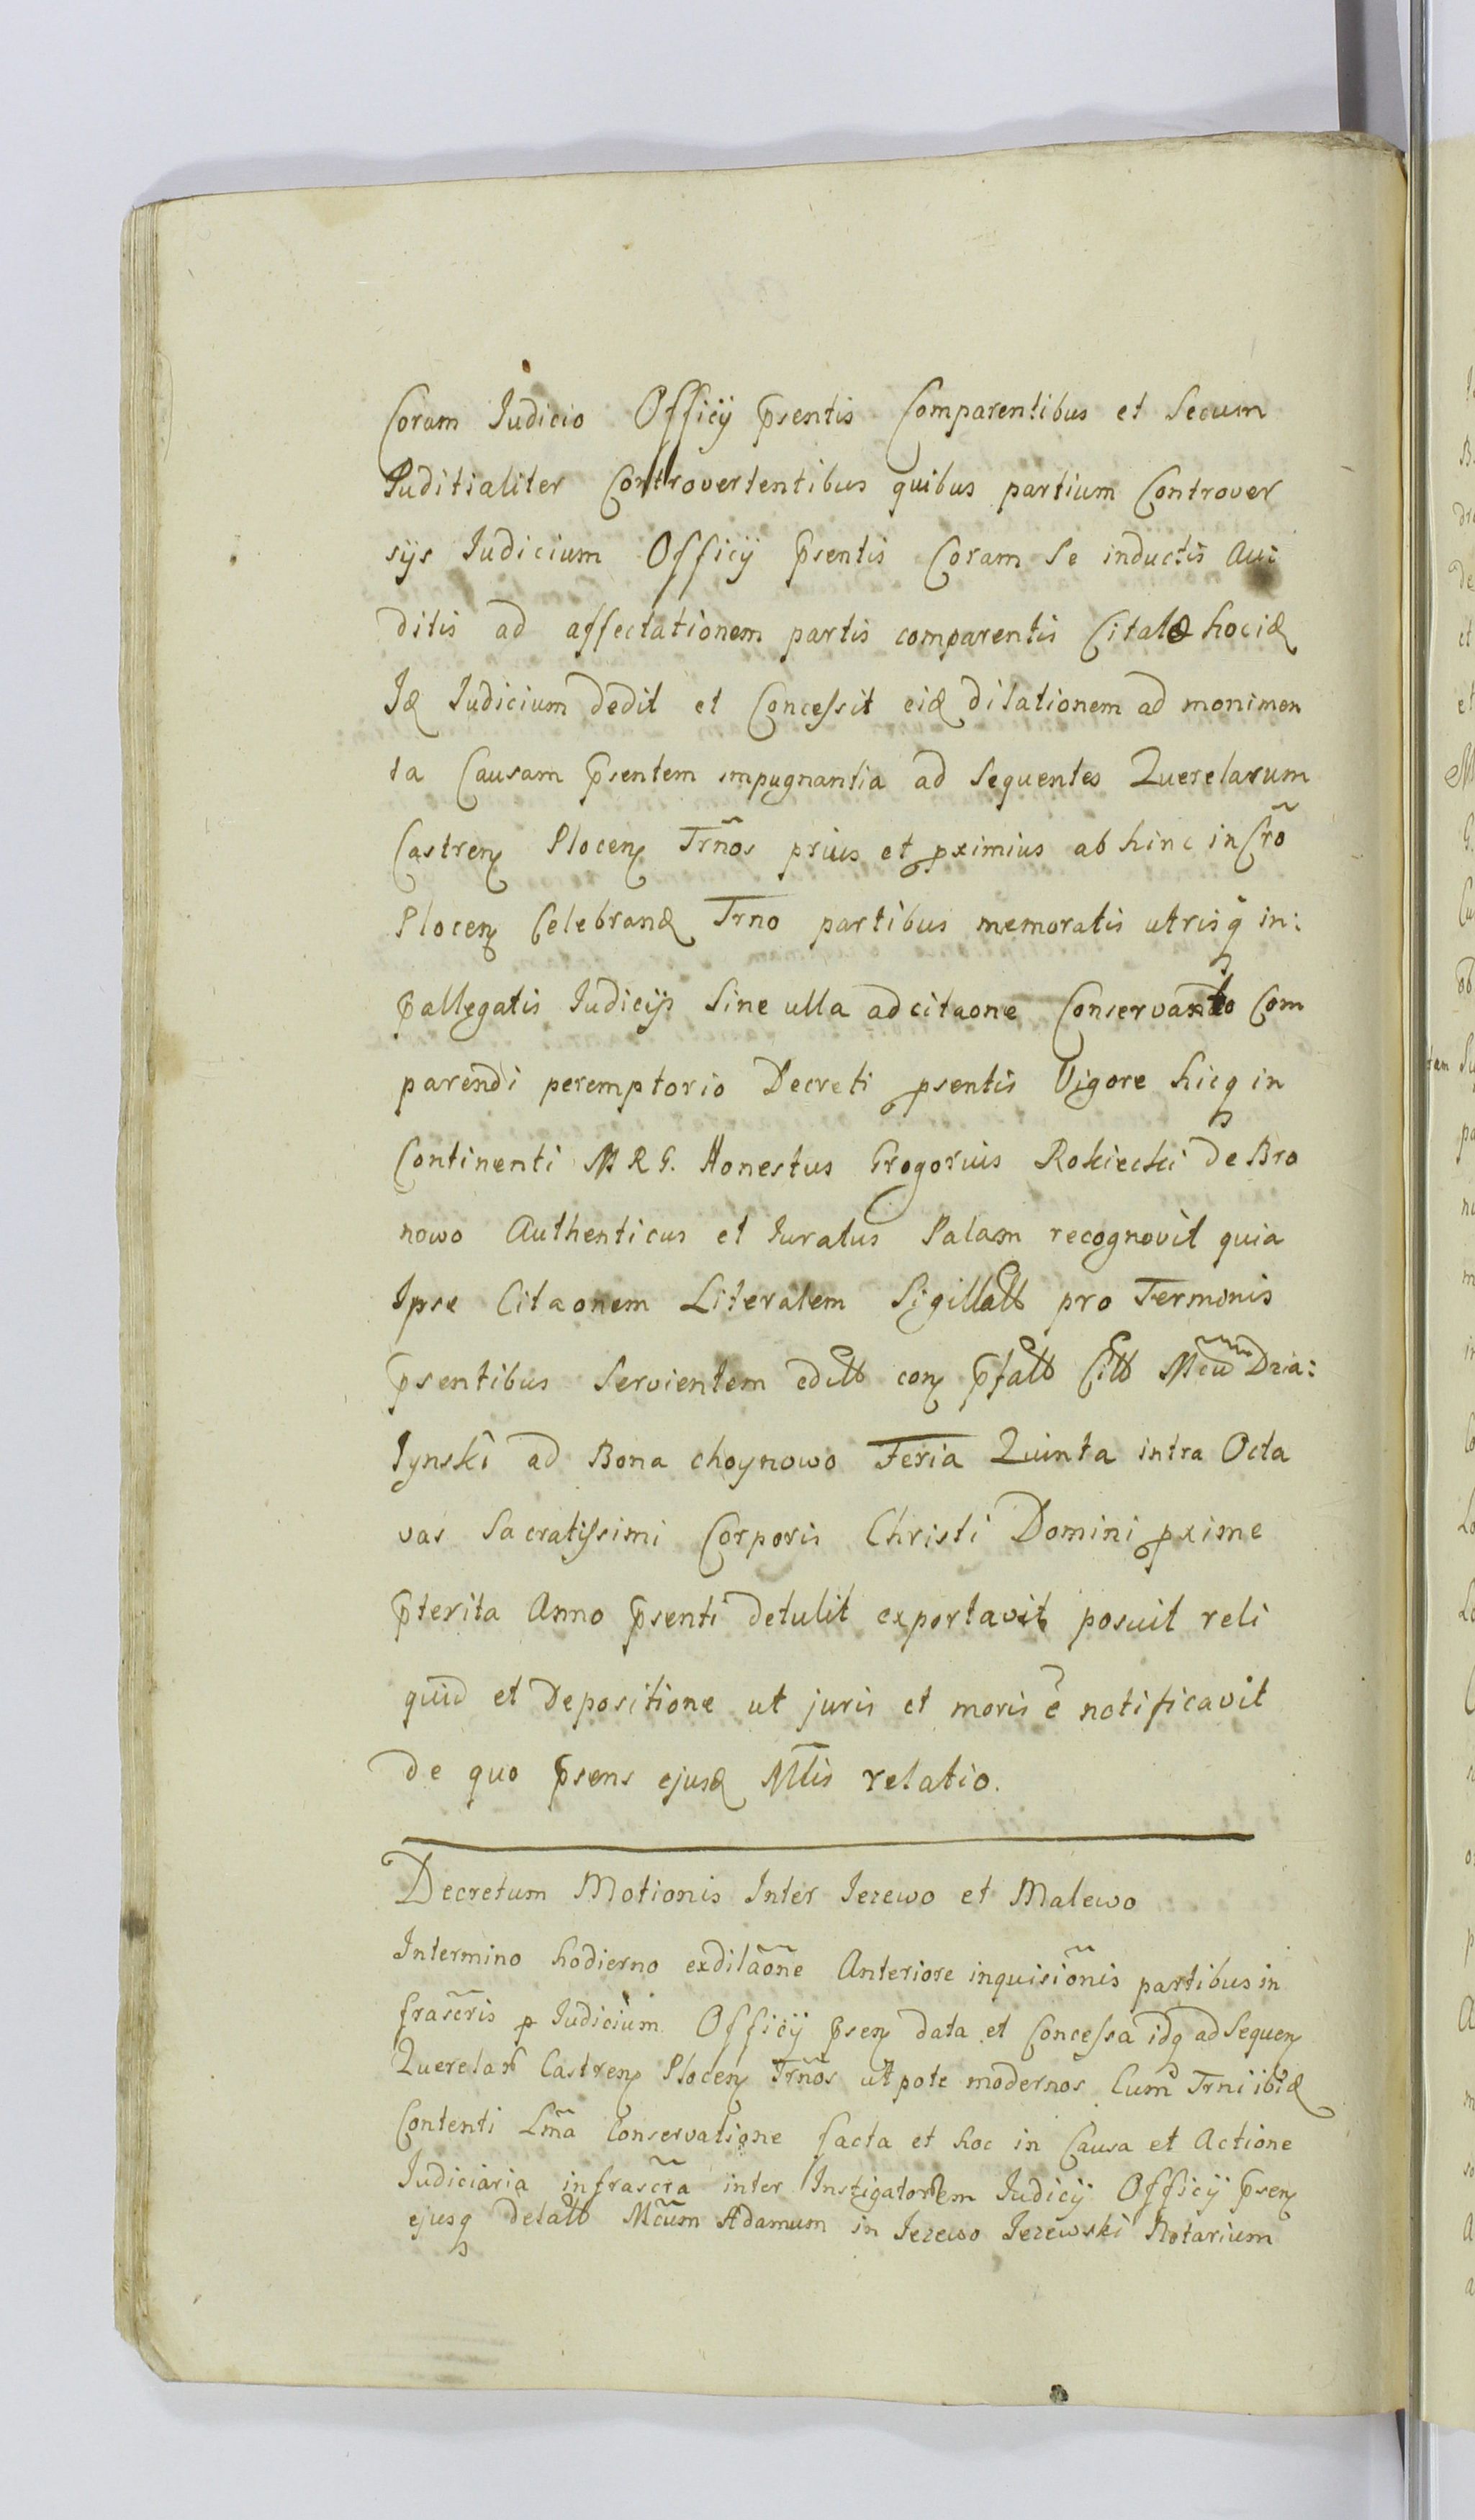 Coram Iudicio Officij p̄sentis Comparentibus et Secum
Iuditialiter Controvertentibus quibus partium Controver
sijs Iudicium Officij p̄sentis Coram Se inductis Au
ditis ad affectationem partis comparentis Citatæ hocid
Id Iudicium dedit et Concessit eid dilationem ad monimen
ta Causam p̄sentem impugnantia ad Sequentes Querelarum
Castren Plocen Trn̄os prius et pximius ab hinc in Cr̃o
Plocen Celebrand Trno partibus memoratis utrisq in:
p̄allegatis Iudicijs Sine ulla adcitaone Conservanto Com
parendi peremptorio Decreti psentis Vigore hicq in
Continenti M R G. Honestus Gregorius Rokiecki de Bro
nowo Authenticus et Iuratus Palam recognovit quia
Ipse Citaonem Literalem Sigillatt pro Terminis
p̄sentibus Servientem editt con p̄fatt Citt Mc̃u Dzia:
lynski ad Bona choynowo Feria Quinta intra Octa
vas Sacratissimi Corporis Christi Domini pxime
p̄terita Anno p̄senti detulit exportavit posuit reli
quid et Depositione ut juris et moris ē notificavit
de quo p̄sens ejusd Mtis relatio.
Decretum Motionis Inter Iezewo et Malewo
Intermino hodierno exdilãone Anteriore inquisiõnis partibus in
frascr̃is p Iudicium Officij p̄sen data et Concessa idq ad Sequen
Querelar Castren Plocen Trn̄os utpote modernos Cum Trni ibid
Contenti Lm̃a Conservatione facta et hoc in Causa et Actione
Iudiciaria infrascr̃a inter Instigatorem Iudicij Officij p̄sen
ejusq delatt Mc̃um Adamum in Iezewo Iezewski Notarium